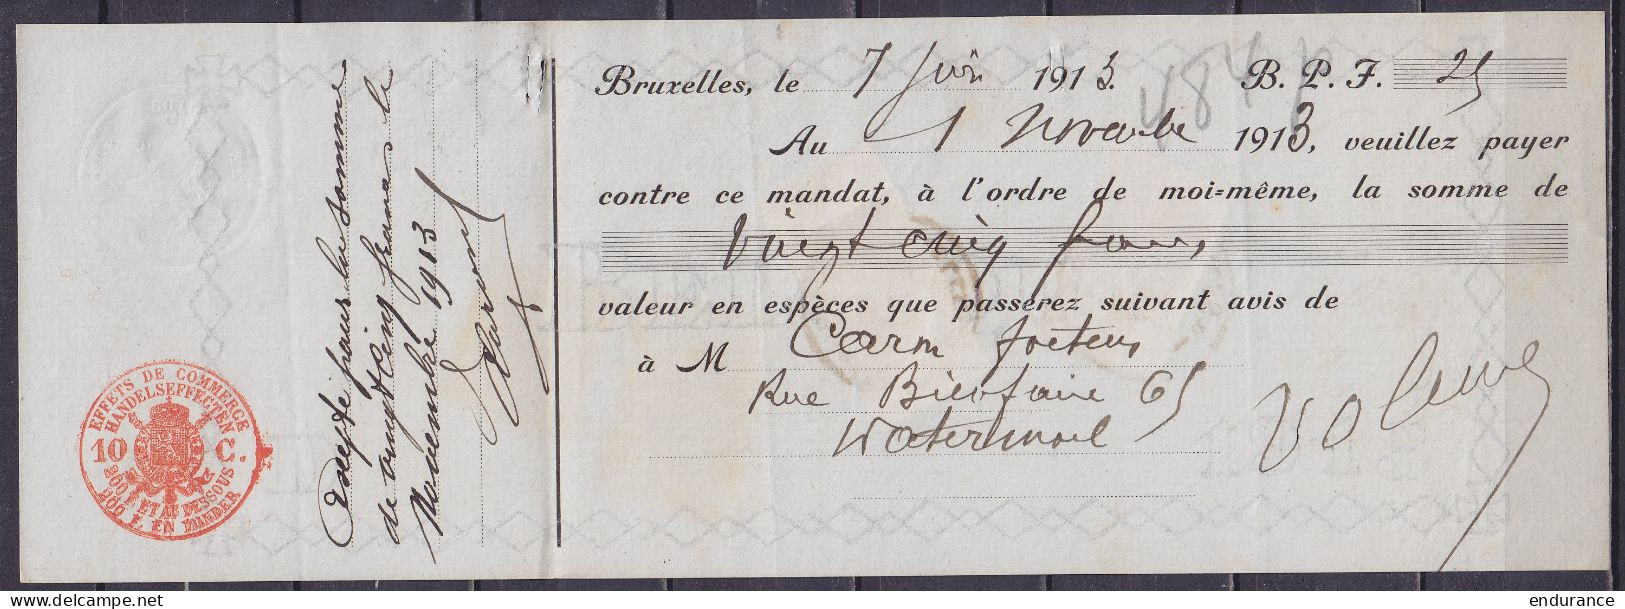 Bruxelles, le 7 Juin 1913. B. P. F. 25
Au 1 Novembre 1913, veuillez payer
contre ce mandat, à l'ordre de moi=même, la somme de
Vingt cinq francs
valeur en espèces que passerez suivant avis de
à M
Rue Bienfaire 65
Watermael
Accepté pour la somme
de vingt cinq francs le
Novembre 1913
EFFETS DE COMMERCE
HANDELSEFFECTEN
10 C.
200 F. ET AU DESSOUS
200 F. EN MINDER
endurance